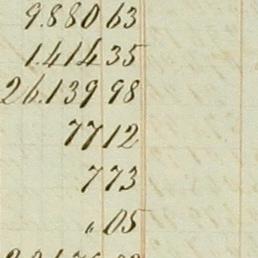 9.880 63
1.414 35
26.139 98
77 12
7 73
" 05